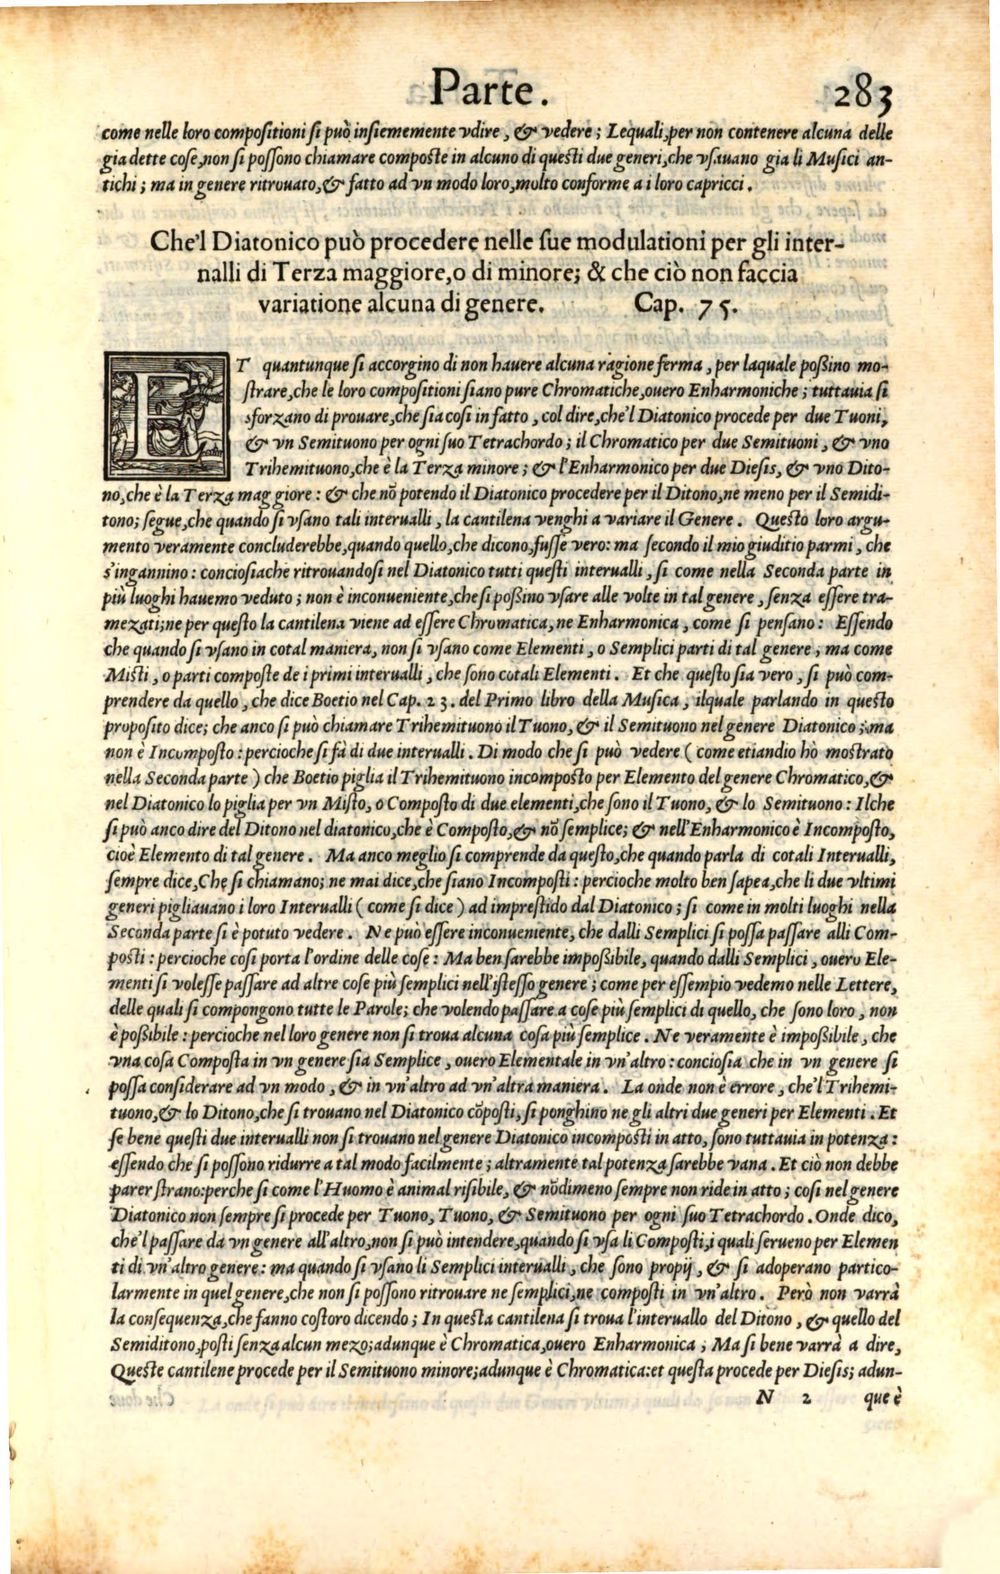 Parte. 283
come nelle loro compoſitioni ſi può inſiememente vdire, & vedere; Lequali,per non contenere alcuna delle
gia dette coſe,non ſi poſſono chiamare compoſte in alcuno di queſti due generi,che vſauano gia li Muſici an-
tichi; ma in genere ritrouato,& fatto ad vn modo loro,molto conforme a i loro capricci.
Che'l Diatonico può procedere nelle ſue modulationi per gli inter-
nalli di Terza maggiore,o di minore; & che ciò non faccia
variatione alcuna di genere. Cap. 75.
ET quantunque ſi accorgino di non hauere alcuna ragione ferma, per laquale poßino mo-
ſtrare,che le loro compoſitioni ſiano pure Chromatiche,ouero Enharmoniche; tuttauia ſi
sforzano di prouare,che ſia coſi in fatto, col dire,che'l Diatonico procede per due Tuoni,
& vn Semituono per ogni ſuo Tetrachordo; il Chromatico per due Semituoni, & vno
Trihemituono,che è la Terza minore; & l'Enharmonico per due Dieſis, & vno Dito-
no,che è la Terza maggiore: & che nō potendo il Diatonico procedere per il Ditono,ne meno per il Semidi-
tono; ſegue,che quando ſi vſano tali interualli, la cantilena venghi a variare il Genere. Queſto loro argu-
mento veramente concluderebbe,quando quello,che dicono,fuſſe vero: ma ſecondo il mio giuditio parmi, che
s'ingannino: concioſiache ritrouandoſi nel Diatonico tutti queſti interualli, ſi come nella Seconda parte in
più luoghi hauemo veduto; non è inconueniente,che ſi poßino vſare alle volte in tal genere, ſenza eſſere tra-
mezati;ne per queſto la cantilena viene ad eſſere Chromatica,ne Enharmonica, come ſi penſano: Eſſendo
che quando ſi vſano in cotal maniera, non ſi vſano come Elementi, o Semplici parti di tal genere; ma come
Miſti, o parti compoſte de i primi interualli, che ſono cotali Elementi. Et che queſto ſia vero, ſi può com-
prendere da quello, che dice Boetio nel Cap. 23. del Primo libro della Muſica, ilquale parlando in queſto
propoſito dice; che anco ſi può chiamare Trihemituono il Tuono, & il Semituono nel genere Diatonico; ma
non è Incompoſto: percioche ſi fà di due interualli. Di modo che ſi può vedere (come etiandio hò moſtrato
nella Seconda parte) che Boetio piglia il Trihemituono incompoſto per Elemento del genere Chromatico,&
nel Diatonico lo piglia per vn Miſto, o Compoſto di due elementi,che ſono il Tuono, & lo Semituono: Ilche
ſi può anco dire del Ditono nel diatonico,che è Compoſto,& nō ſemplice; & nell'Enharmonico è Incompoſto,
cioè Elemento di tal genere. Ma anco meglio ſi comprende da queſto,che quando parla di cotali Interualli,
ſempre dice,Che ſi chiamano; ne mai dice,che ſiano Incompoſti: percioche molto ben ſapea,che li due vltimi
generi pigliauano i loro Interualli (come ſi dice) ad impreſtido dal Diatonico; ſi come in molti luoghi nella
Seconda parte ſi è potuto vedere. Ne può eſſere inconueniente, che dalli Semplici ſi poſſa paſſare alli Com-
poſti: percioche coſi porta l'ordine delle coſe: Ma ben ſarebbe impoßibile, quando dalli Semplici, ouero Ele-
menti ſi voleſſe paſſare ad altre coſe più ſemplici nell'iſteſſo genere; come per eſſempio vedemo nelle Lettere,
delle quali ſi compongono tutte le Parole; che volendo paſſare a coſe più ſemplici di quello, che ſono loro, non
è poßibile: percioche nel loro genere non ſi troua alcuna coſa più ſemplice. Ne veramente è impoßibile, che
vna coſa Compoſta in vn genere ſia Semplice, ouero Elementale in vn'altro: concioſia che in vn genere ſi
poſſa conſiderare ad vn modo, & in vn'altro ad vn'altra maniera. La onde non è errore, che'l Trihemi-
tuono,& lo Ditono,che ſi trouano nel Diatonico cōpoſti, ſi ponghino ne gli altri due generi per Elementi. Et
ſe bene queſti due interualli non ſi trouano nel genere Diatonico incompoſti in atto, ſono tuttauia in potenza:
eſſendo che ſi poſſono ridurre a tal modo facilmente; altramente tal potenza ſarebbe vana. Et ciò non debbe
parer ſtrano:perche ſi come l'Huomo è animal riſibile, & nōdimeno ſempre non ride in atto; coſi nel genere
Diatonico non ſempre ſi procede per Tuono, Tuono, & Semituono per ogni ſuo Tetrachordo. Onde dico,
che'l paſſare da vn genere all'altro,non ſi può intendere,quando ſi vſa li Compoſti,i quali ſerueno per Elemen
ti di vn'altro genere: ma quando ſi vſano li Semplici interualli, che ſono propij, & ſi adoperano partico-
larmente in quel genere,che non ſi poſſono ritrouare ne ſemplici,ne compoſti in vn'altro. Però non varrà
la conſequenza,che fanno coſtoro dicendo; In queſta cantilena ſi troua l'interuallo del Ditono, & quello del
Semiditono,poſti ſenza alcun mezo;adunque è Chromatica,ouero Enharmonica; Ma ſi bene varrà a dire,
Queſte cantilene procede per il Semituono minore;adunque è Chromatica:et queſta procede per Dieſis; adun-
N 2 que è